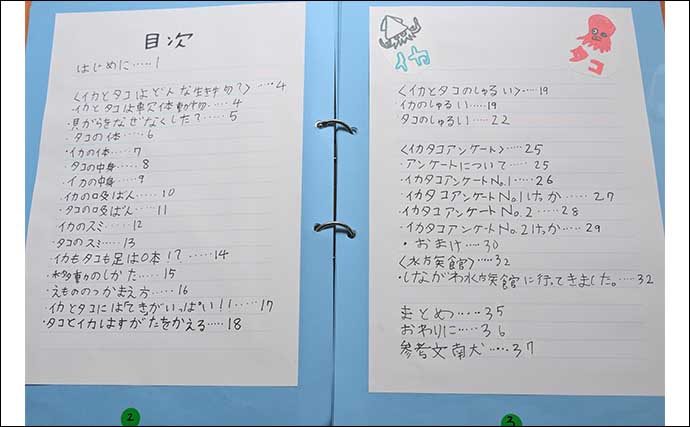 目次
はじめに‥‥1
〈イカとタコはどんな生き物?〉‥‥4
・イカとタコは軟体動物‥‥4
・貝がらをなぜなくした?‥‥5
・タコの体‥‥6
・イカの体‥‥7
・タコの中身‥‥8
・イカの中身‥‥9
・イカの吸ばん‥‥10
・タコの吸ばん‥‥11
・イカのスミ‥‥12
・タコのスミ‥‥13
・イカもタコも足は0本!?‥‥14
・移動のしかた‥‥15
・えもののつかまえ方‥‥16
・イカとタコにはてきがいっぱい!!‥‥17
・タコとイカはすがたをかえる‥‥18
2
イカ
タコ
〈イカとタコのしゅるい〉‥‥19
・イカのしゅるい‥‥19
・タコのしゅるい‥‥22
〈イカタコアンケート〉‥‥25
・アンケートについて‥‥25
・イカタコアンケートNo.1‥‥26
・イカタコアンケートNo.1けっか‥‥27
・イカタコアンケートNo.2‥‥28
・イカタコアンケートNo.2けっか‥‥29
・おまけ‥‥30
〈水族館〉‥‥32
・しながわ水族館に行ってきました。‥‥32
まとめ‥‥35
おわりに‥‥36
参考文献‥‥37
3